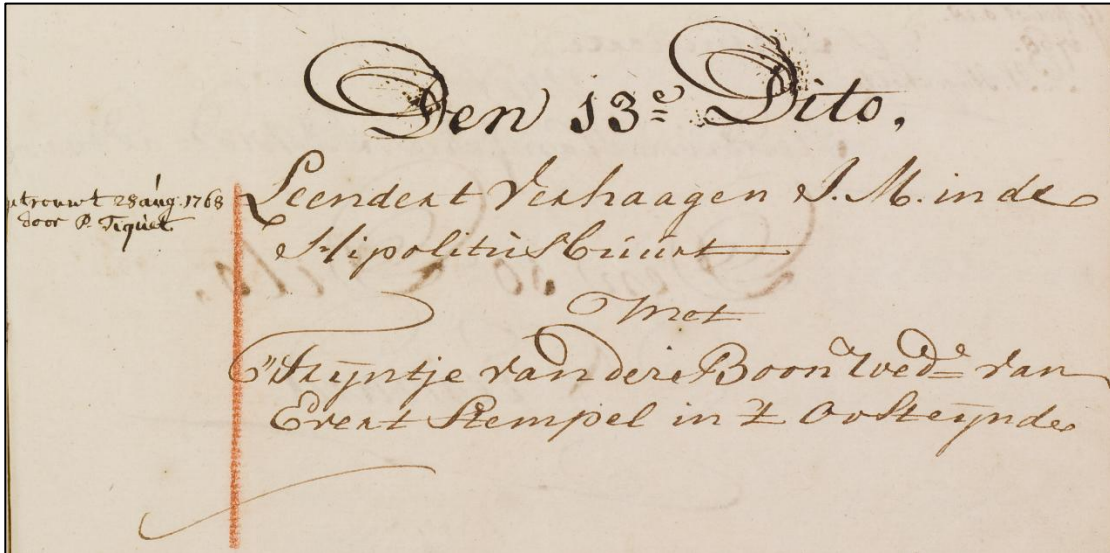 Den 13e Dito,
getrouwt 28 aug. 1768
door P. Tiquet
Leendert Verhaagen J. M. in de
Hipolitus buurt
Met
Stijntje van der Boon Wede van
Evert Stempel in 't Oosteijnde